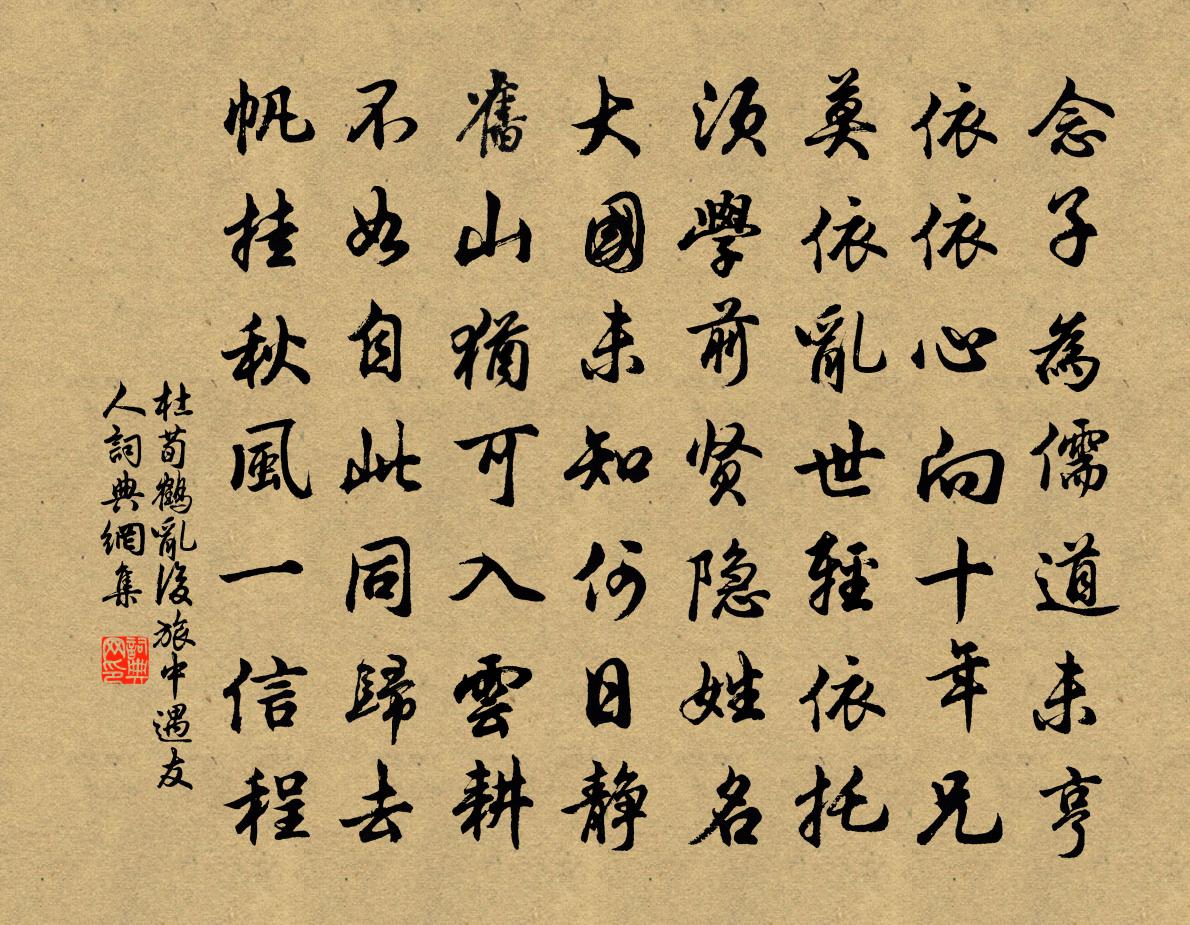 念子為儒道未亨
依依心向十年兄
莫依亂世輕依托
須學前贤隐姓名
大國未知何日静
舊山猶可入雲耕
不如自此同歸去
帆挂秋風一信程
杜荀鶴亂後旅中遇友
人詞典網集
詞典
网印